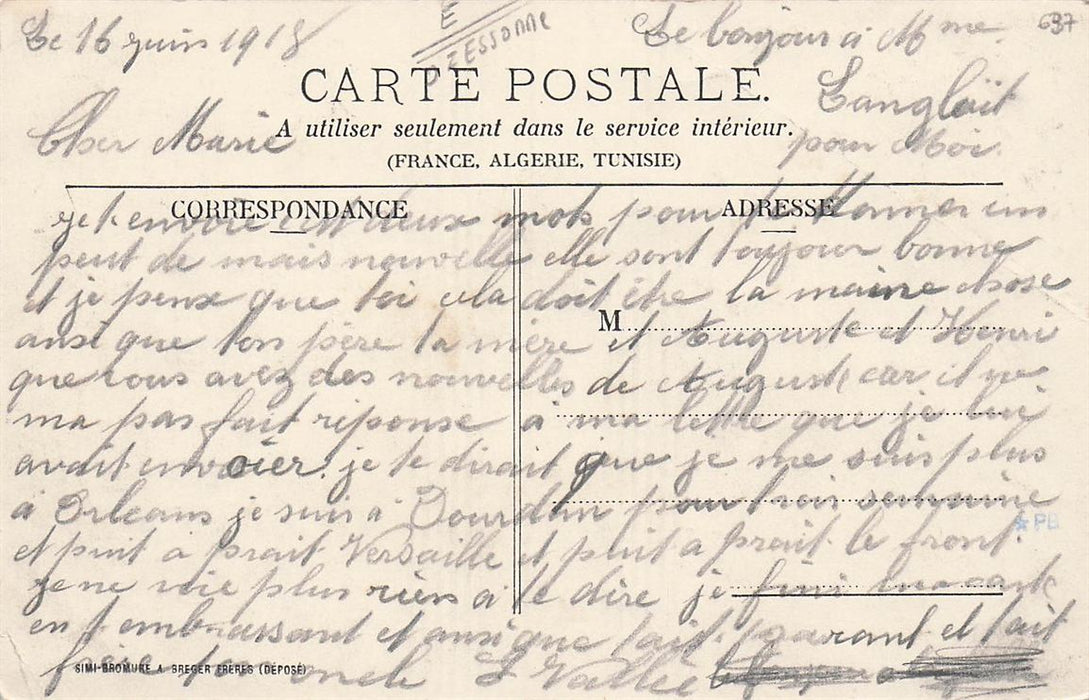 Le 16 juin 1918
E
ESSONNE
Le bonjour a Mme.
697
Langlait
pour Moi.
CARTE POSTALE.
A utiliser seulement dans le service intérieur.
(FRANCE, ALGERIE, TUNISIE)
Cher Marie
CORRESPONDANCE
ADRESSE
M
je t'envoie cest deux mots pour te donner un
peut de mais nouvelle elle sont toujour bonne
et je pense que toi cela doit être la maine chose
ansi que ton père ta mère et Auguste et Henri
que vous avez des nouvelles de Auguste car il ne
ma pas fait réponse a ma lettre que je lui
avait envoier. je te dirait que je me suis plus
a Orleans je suis a Dourdan pour trois semaine
et puit a prait Versaille et puit a prait le front.
★PB
je ne voie plus riens a te dire je fini ma carte
en t'embrassant et ansi que tait parant et tait
frère L Vallée
SIMI-BROMURE A. BREGER FRÈRES (DÉPOSÉ)